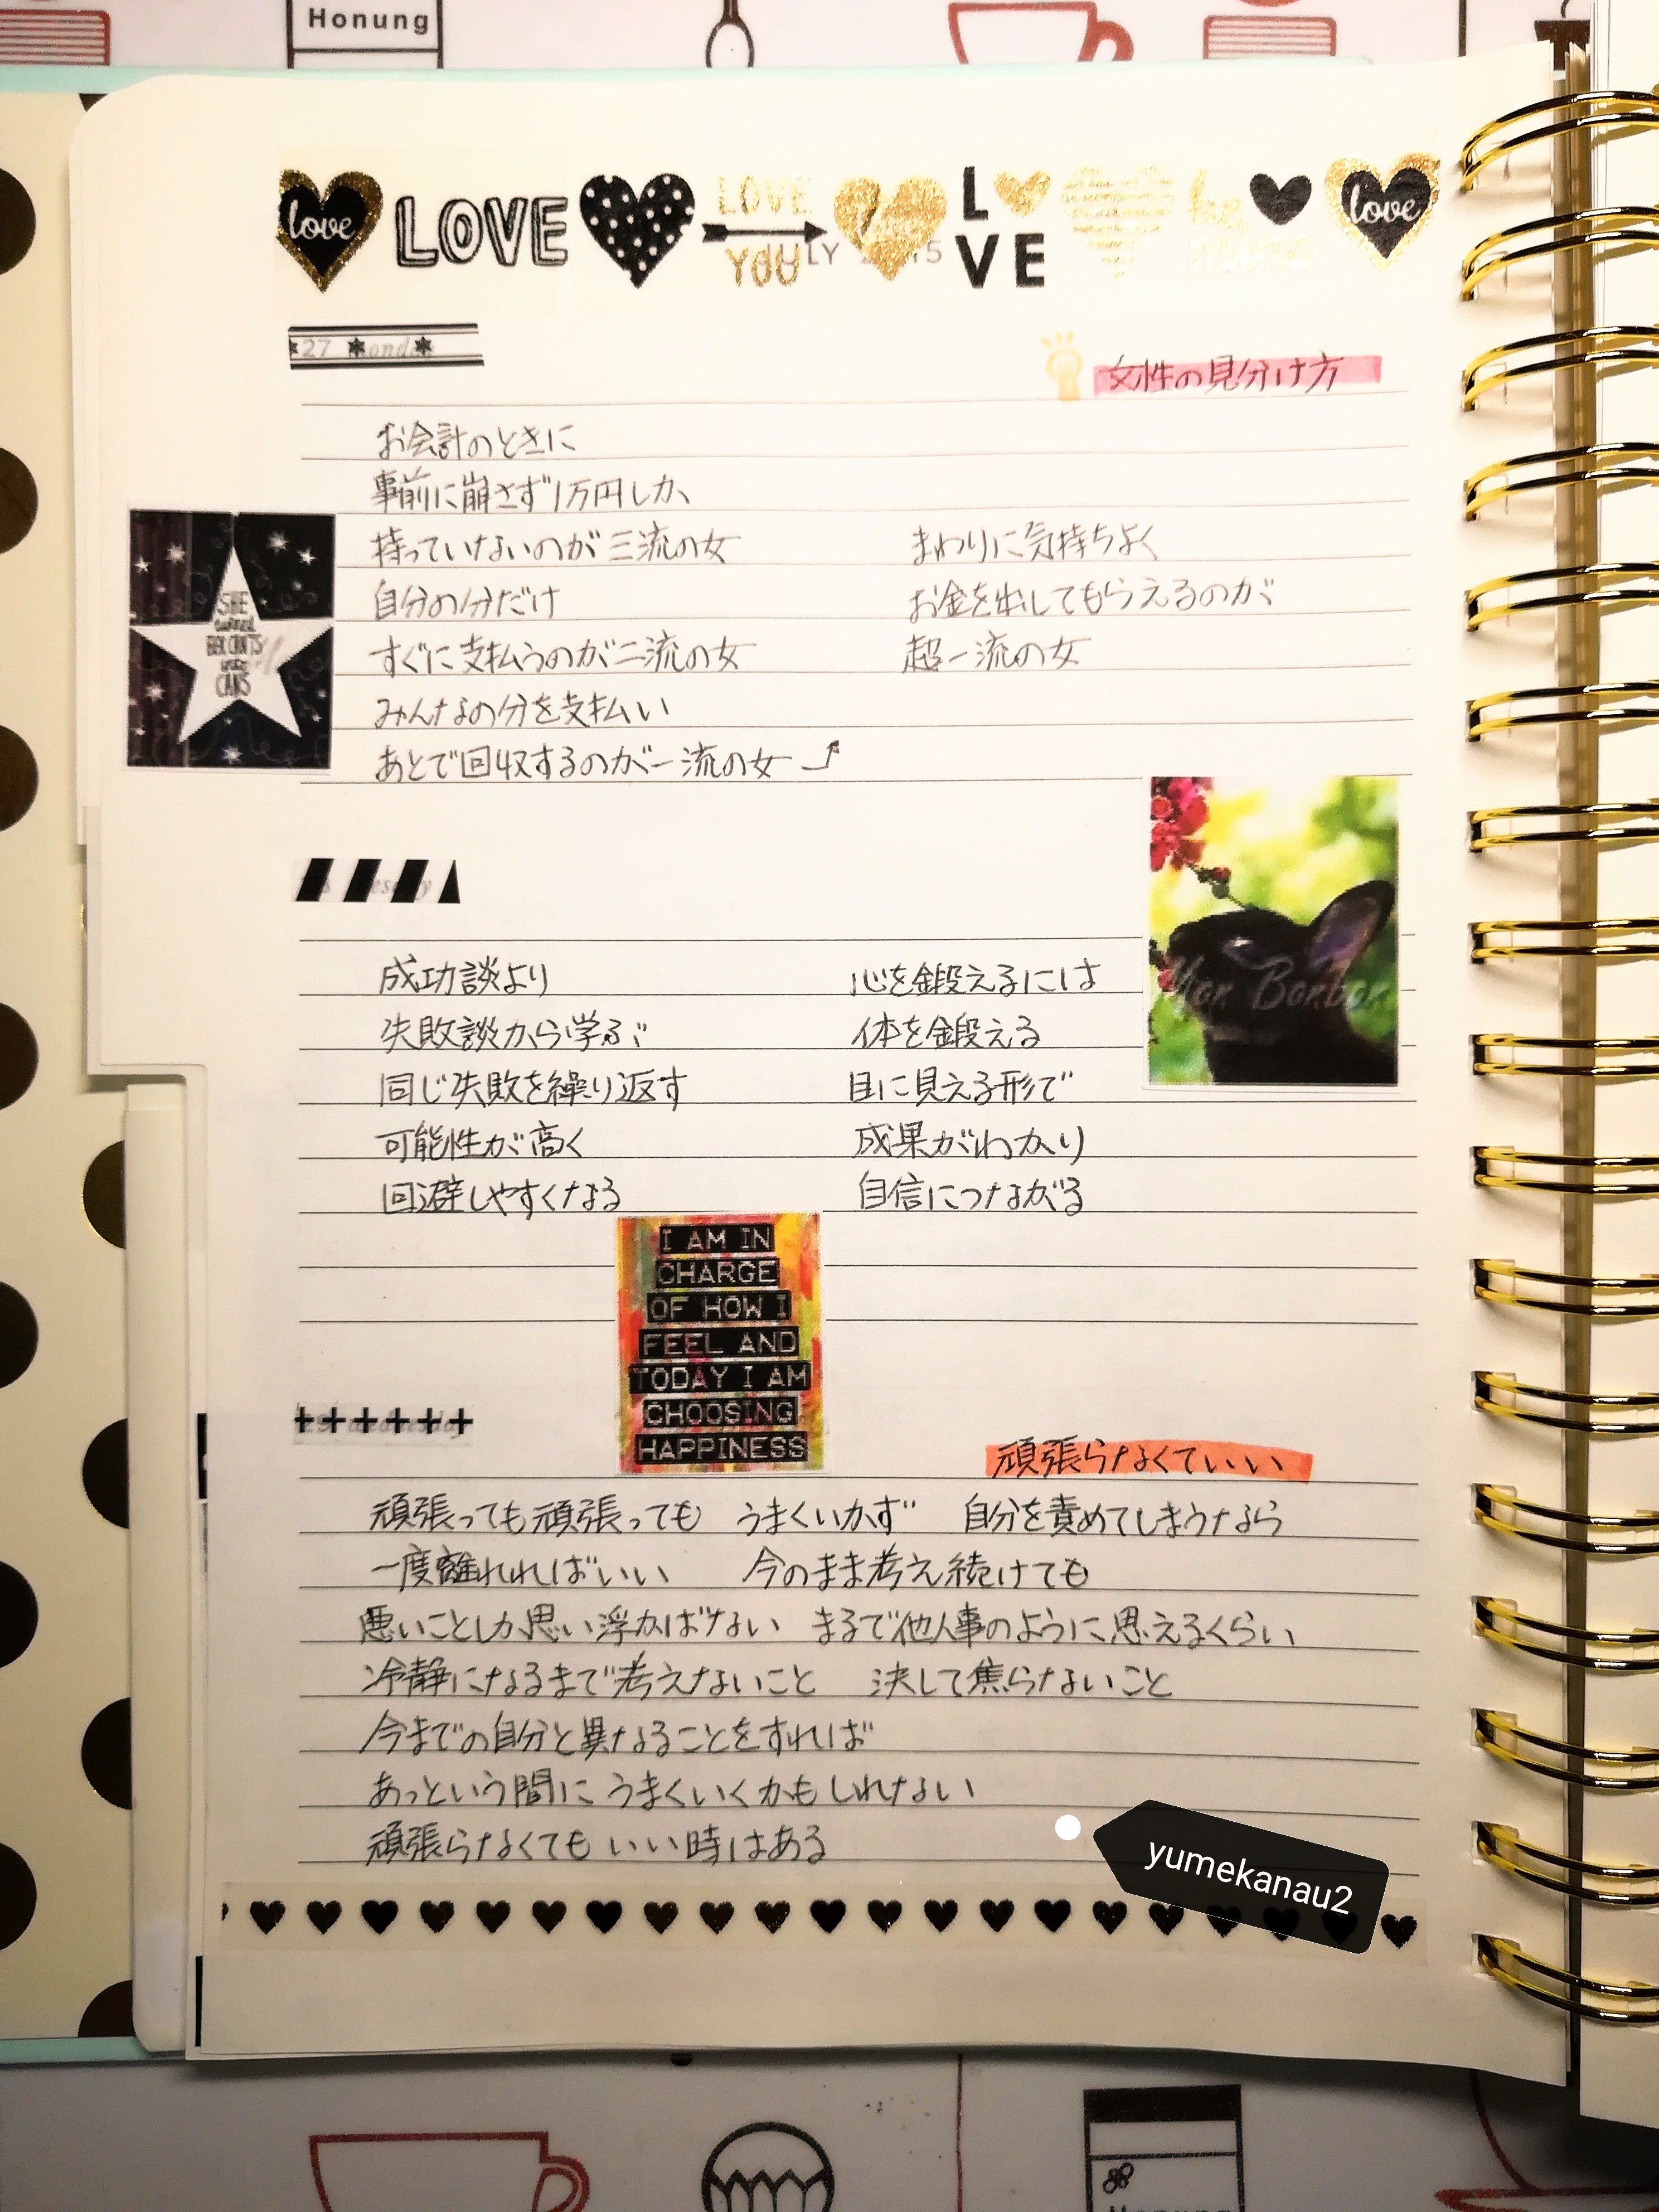 Honung
love LOVE LOVE YOU love L VE be mine love
JULY 2015
27 Monday
女性の見分け方
お会計のときに
事前に崩さず1万円しか
持っていないのが三流の女
自分の分だけ
すぐに支払うのが二流の女
みんなの分を支払い
あとで回収するのが一流の女
まわりに気持ちよく
お金を出してもらえるのが
超一流の女
SHE
turned
HER CAN'TS
into
CANS
成功談より
失敗談から学ぶ
同じ失敗を繰り返す
可能性が高く
回避しやすくなる
心を鍛えるには
体を鍛える
目に見える形で
成果がわかり
自信につながる
Mon Bonbon
I AM IN
CHARGE
OF HOW I
FEEL AND
TODAY I AM
CHOOSING
HAPPINESS
頑張らなくていい
頑張っても頑張っても うまくいかず 自分を責めてしまうなら
一度離れればいい 今のまま考え続けても
悪いことしか思い浮かばない まるで他人事のように思えるくらい
冷静になるまで考えないこと 決して焦らないこと
今までの自分と異なることをすれば
あっという間に うまくいくかもしれない
頑張らなくても いい時はある
yumekanau2